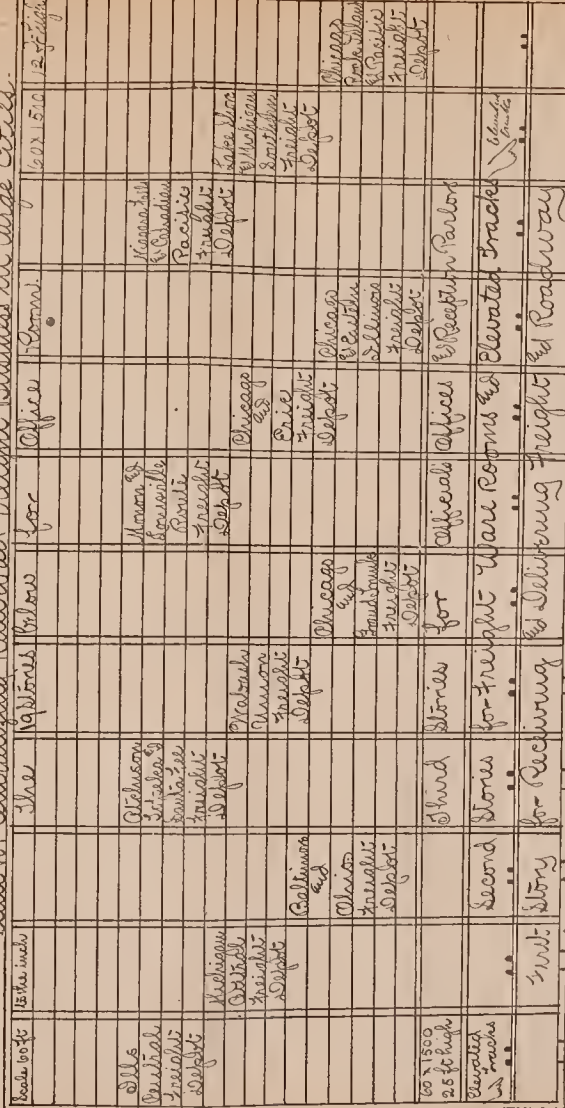 Freight Business in Large Cities.
Scale 60 ft to the inch The 19 Stories Below for Office Rooms 60 x 1500 12 ft high
Ills
Central
Freight
Depot
Michigan
Central
Freight
Depot
Baltimore
and
Ohio
Freight
Depot
Atchison
Topeka &
Santa Fee
Freight
Depot
Wabash
Union
Freight
Depot
Chicago
and
Grand Trunk
Freight
Depot
Monon &
Louisville
Route
Freight
Depot
Chicago
and
Erie
Freight
Depot
Chicago
& Eastern
Illinois
Freight
Depot
Niagara Falls
& Canadian
Pacific
Freight
Depot
Lake Shore
& Michigan
Southern
Freight
Depot
Chicago
Rock Island
& Pacific
Freight
Depot
60 x 1500
25 ft high
Third Stories for Officials Offices & Reception Parlors
Elevated
Tracks
Second Stories for Freight Ware Rooms and Elevated Tracks
Elevated
Tracks
First Story for Receiving and Delivering Freight and Roadway